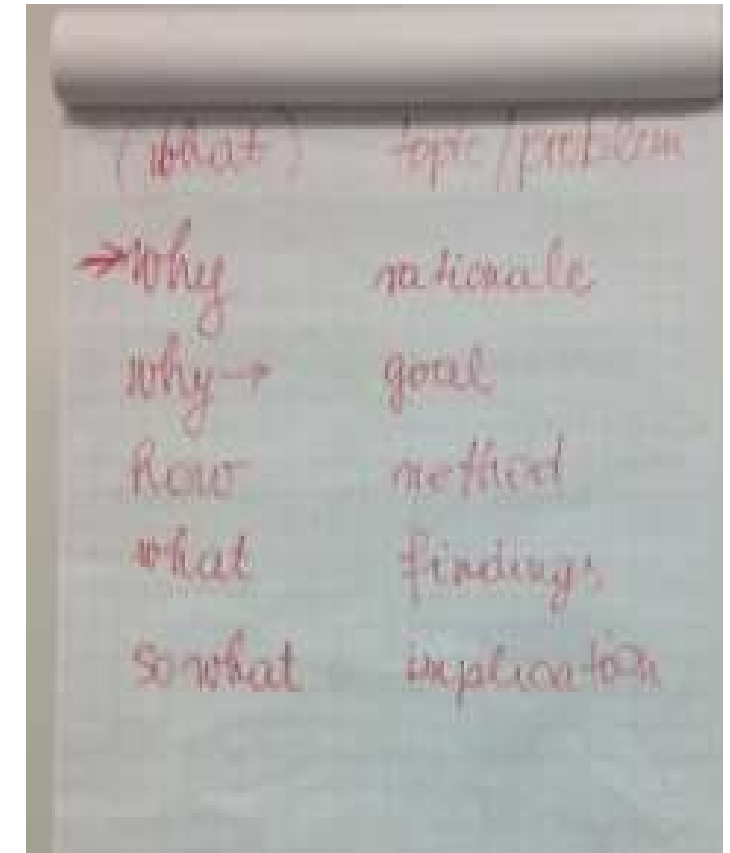 (what) topic/problem
→why rationale
why→ goal
how method
what findings
so what implication